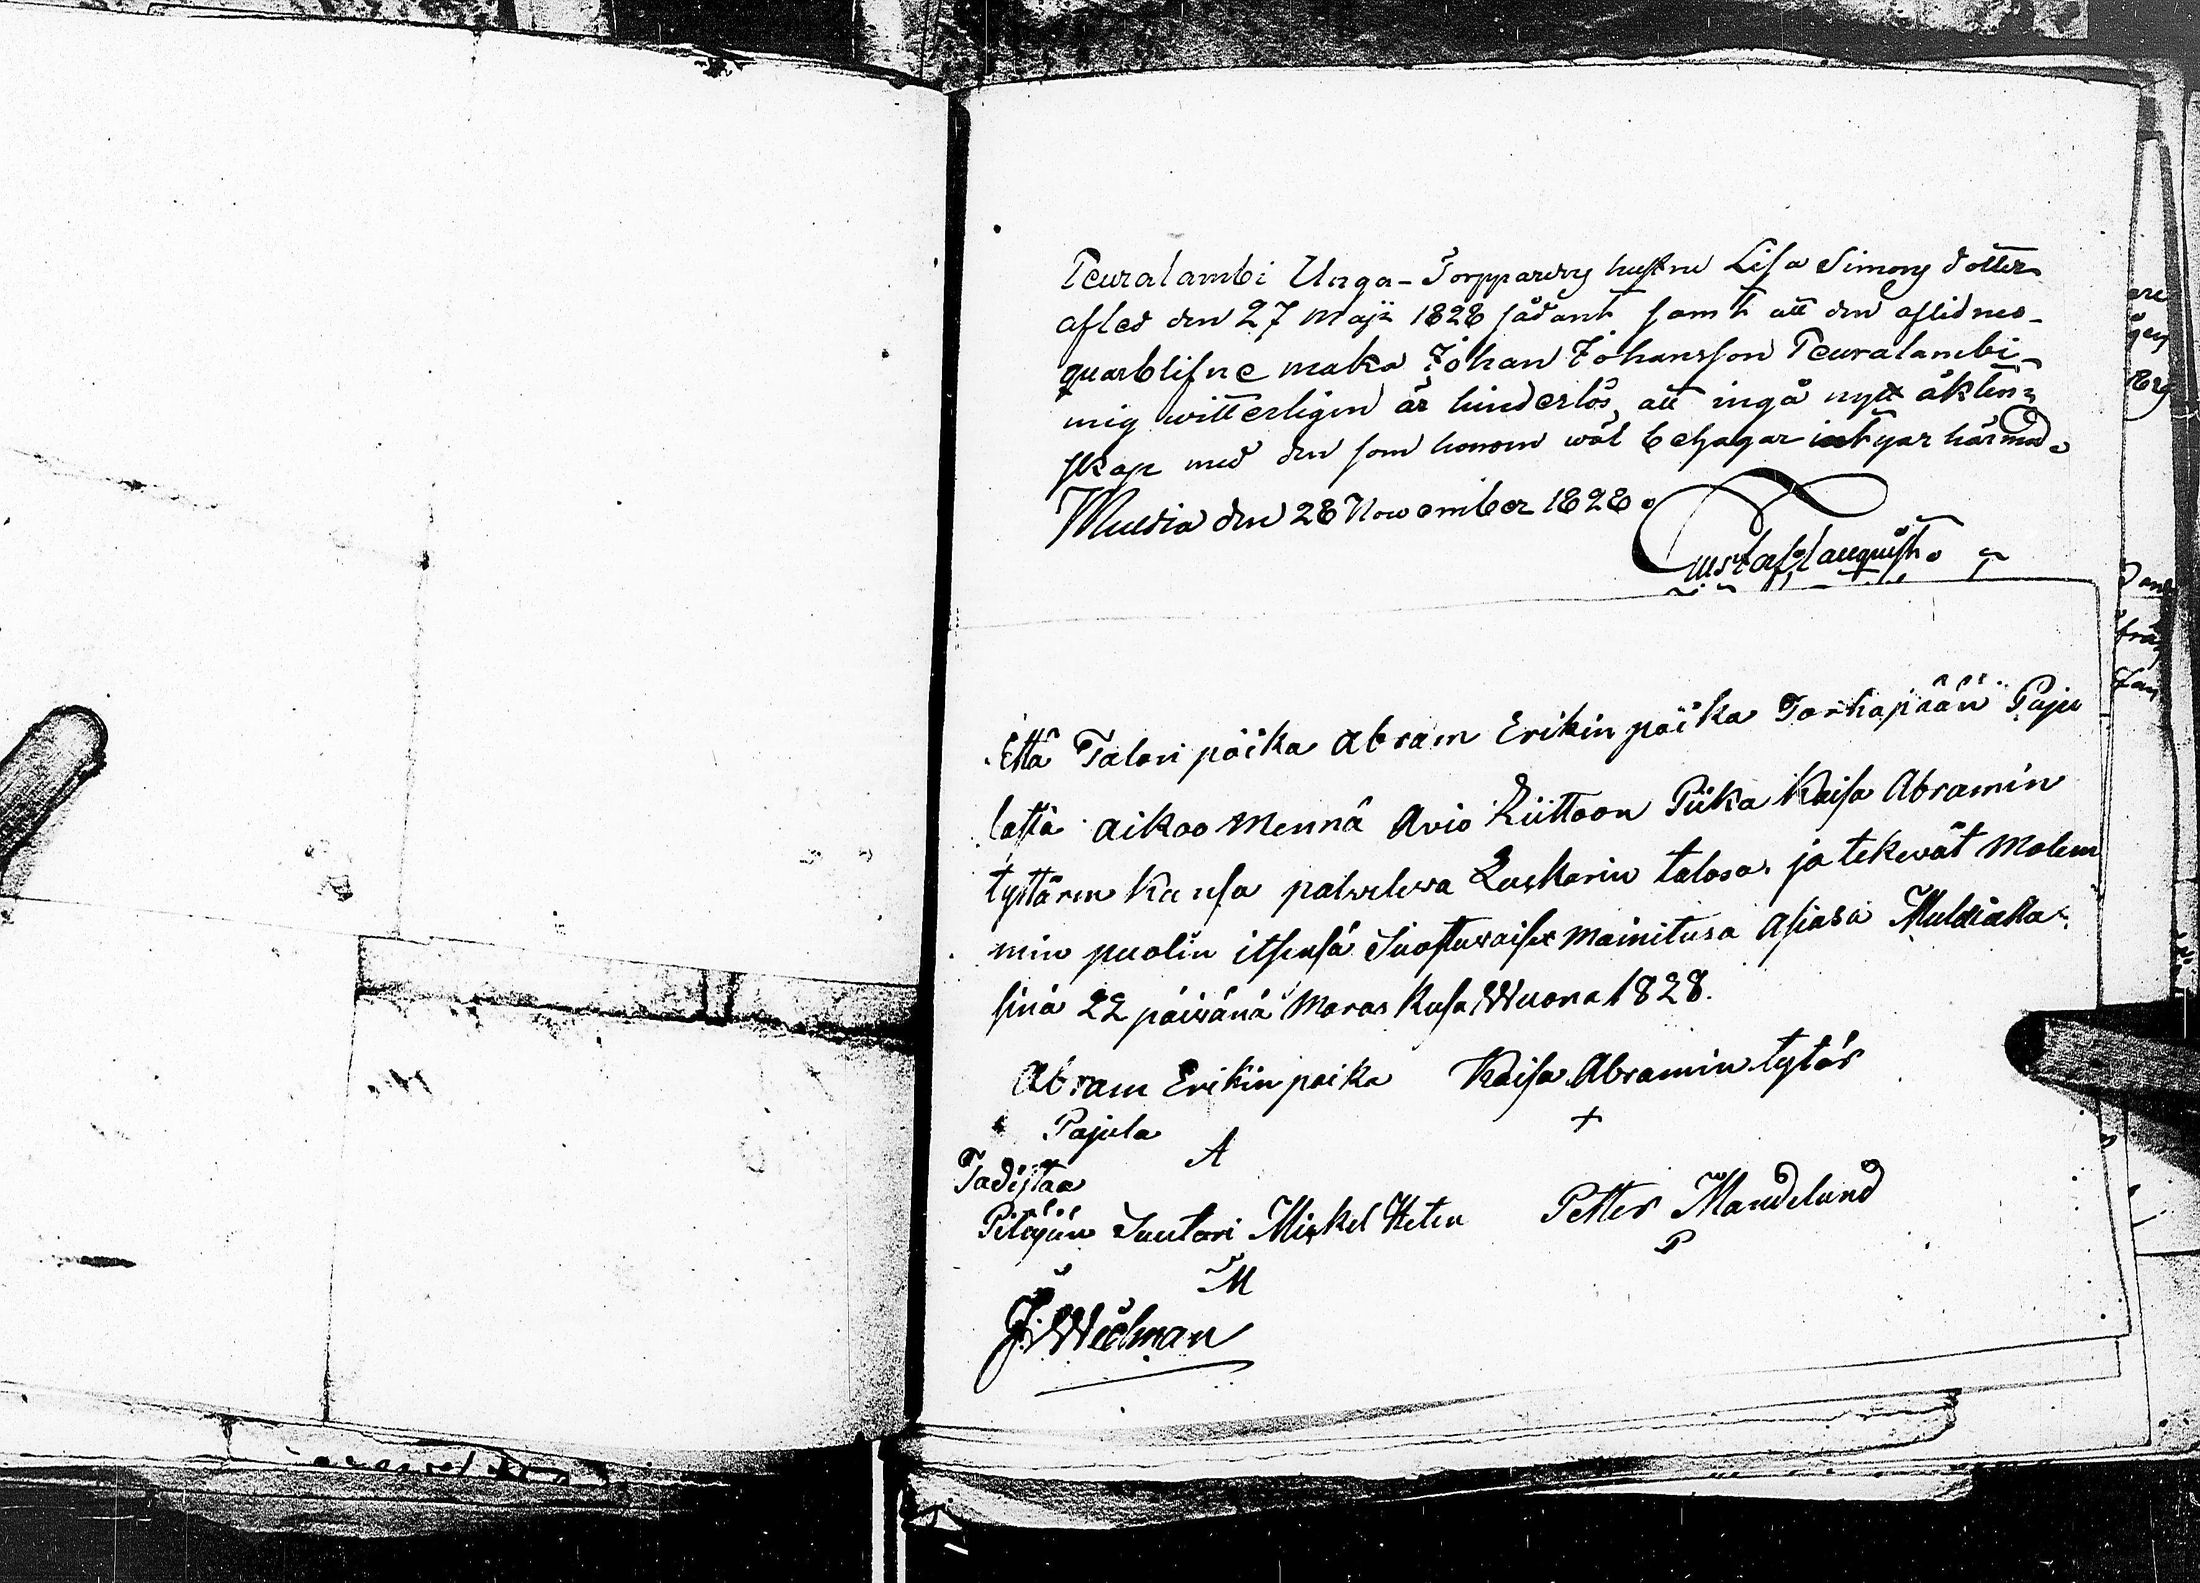 Teuralambi Unga-Torpparens hustru Lisa Simons dotter
afled den 27 Maji 1828 sådant samt att den aflidnes
quarblifne maka Johan Johansson Teuralambi
mig witterligen är hinderlös att ingå nytt äkten=
skap med den som honom wäl behagar intygar härmed.
Muldia den 28 November 1828.
Gustaf Haugqvist.
Että Talon pöika Abram Erikin pöika Torhapään Paju
lasta aikoo Mennä Avio Kiittoon Piika Kaisa Abramin
tyttären Kansa palvelewa Laskarin talosa. ja tekewät Molem
min puolin itsensä Suostuwaisex Mainitusa Asiasa Muldiaka
sinä 22 päiwänä Maras Kusa Wuona 1828.
Abram Erikin poika Kaisa Abramin tytär
Pajula +
A
Tadistaa
Pitäjän Suutari Mickel Heten Petter Mandelund
M P
J. Wielman